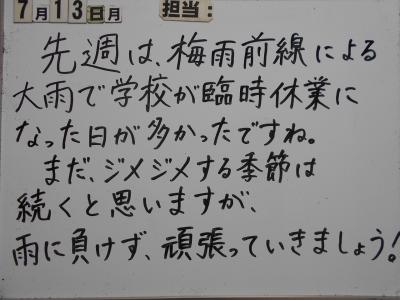 7月13日月 担当:
先週は、梅雨前線による
大雨で学校が臨時休業に
なった日が多かったですね。
まだ、ジメジメする季節は
続くと思いますが、
雨に負けず、頑張っていきましょう!